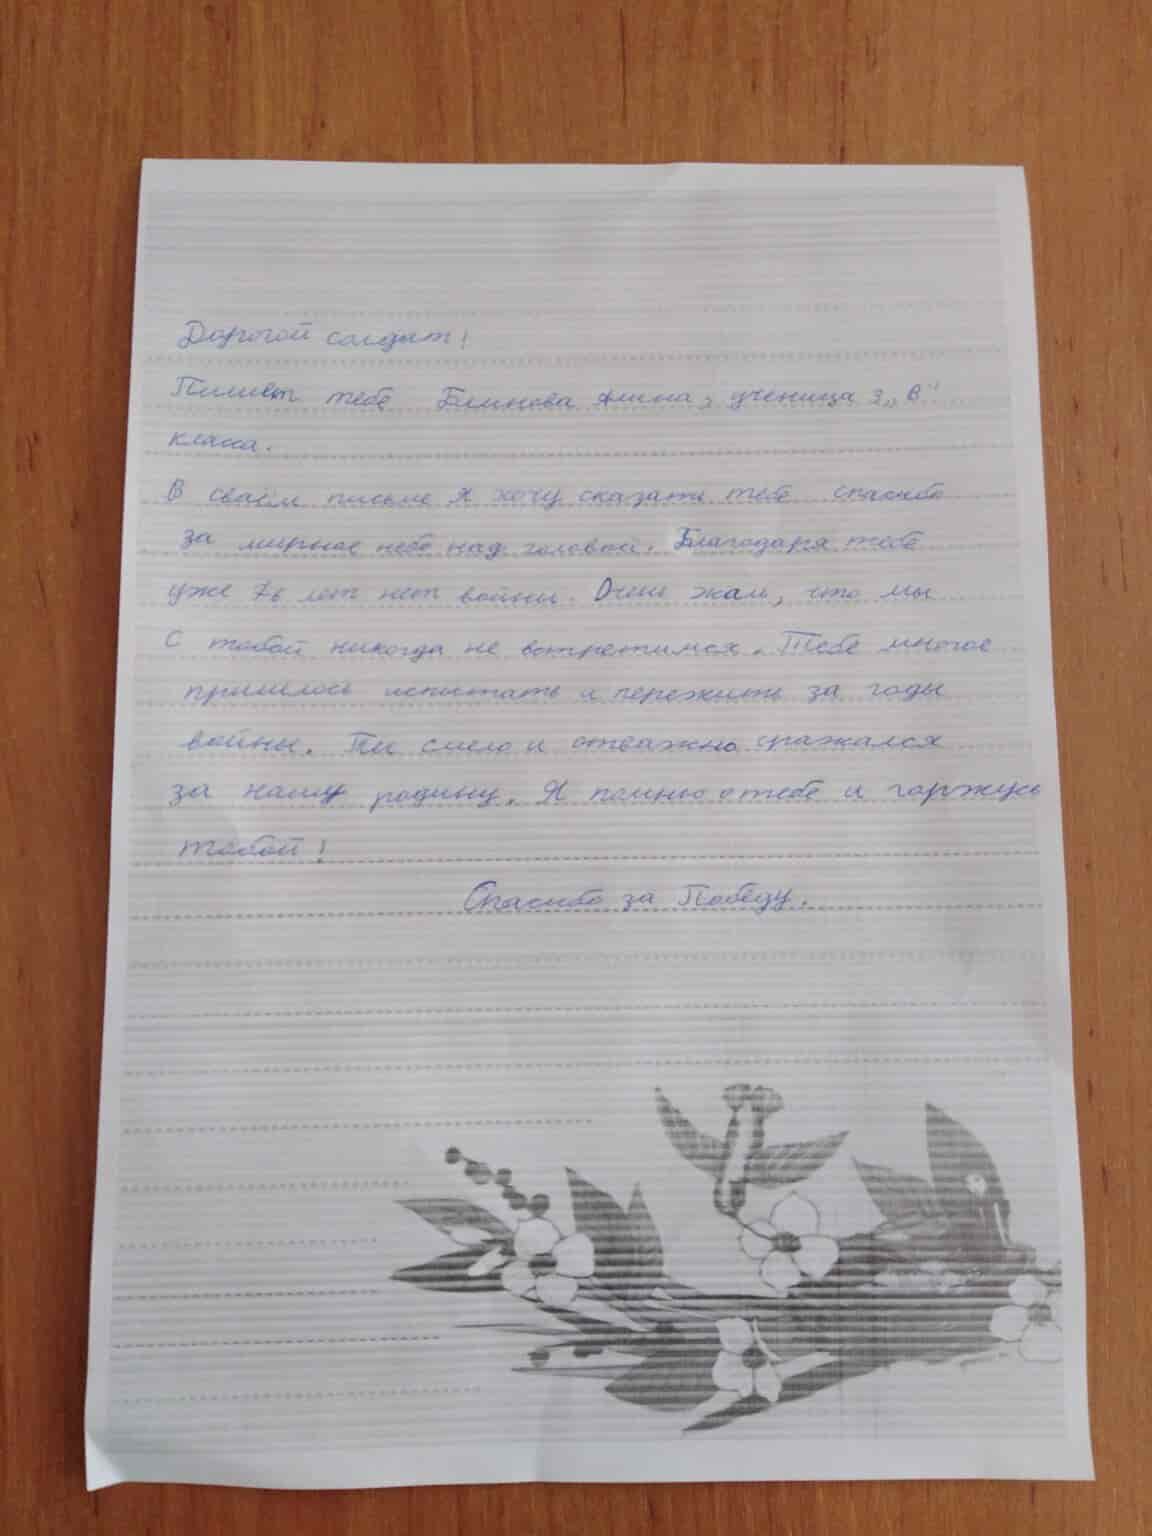 Дорогой солдат!
Пишет тебе Блинова Алина, ученица 3 „В"
класса.
В своём письме я хочу сказать тебе спасибо
за мирное небо над головой. Благодаря тебе
уже 76 лет нет войны. Очень жал, что мы
с тобой никогда не встретимся. Тебе многое
пришлось испытать и пережить за годы
войны. Ты смело и отважно сражался
за нашу родину. Я помню о тебе и горжусь
тобой!
Спасибо за Победу.